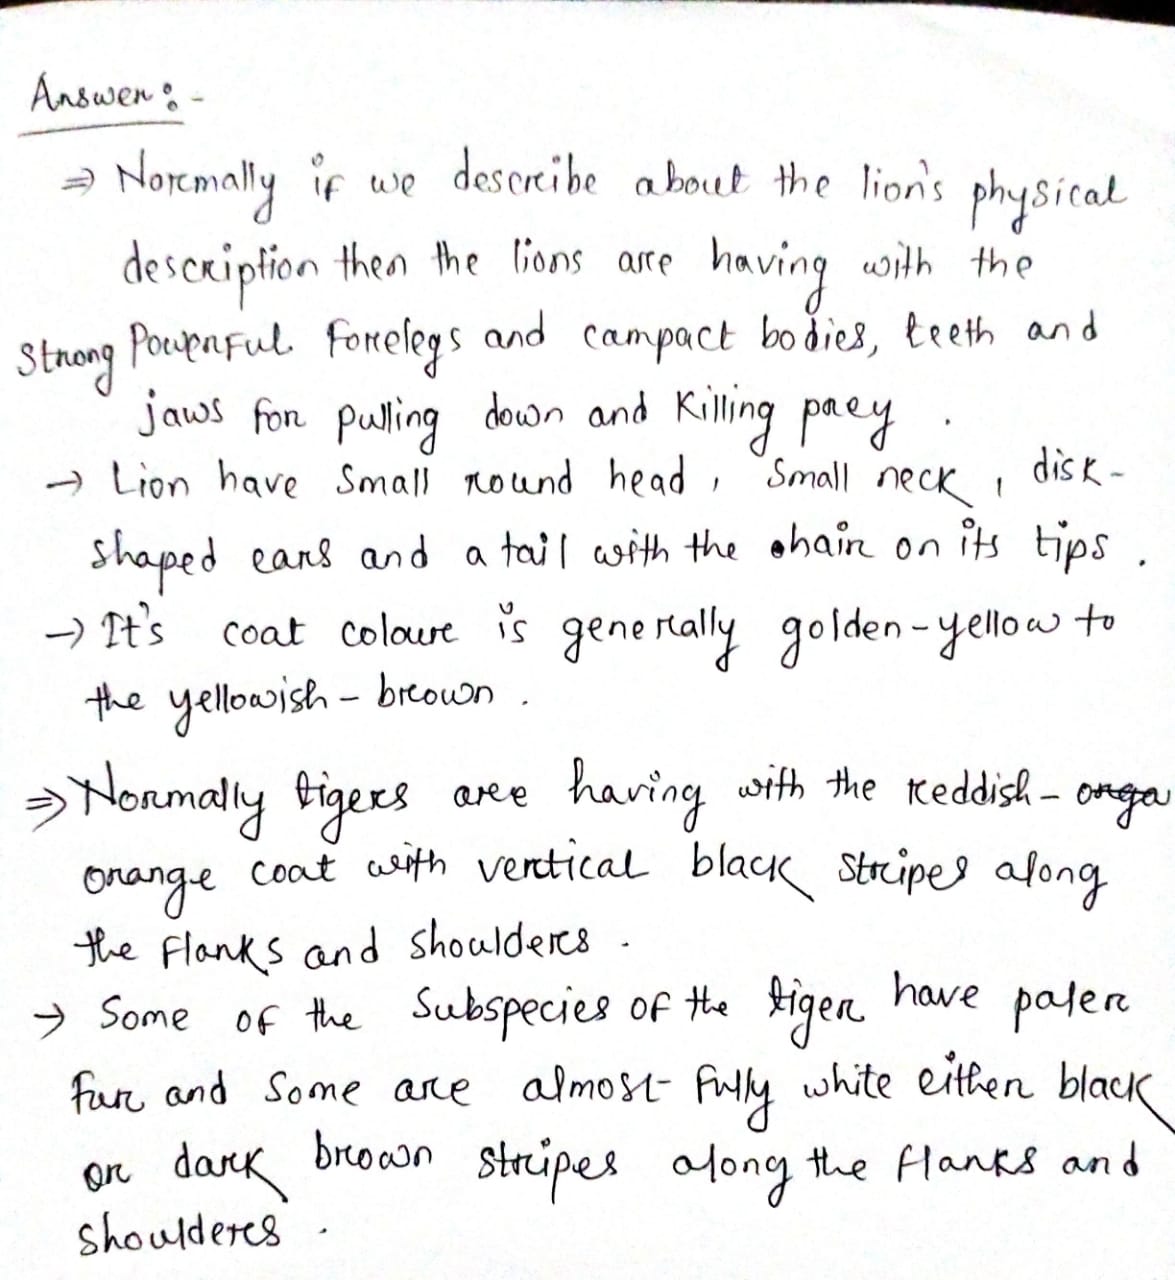 Answer :-
⇒ Normally if we describe about the lion's physical
description then the lions are having with the
strong Powerful forelegs and campact bodies, teeth and
jaws for pulling down and killing prey .
→ Lion have small round head , small neck , disk-
shaped ears and a tail with the hair on its tips .
→ It's coat colour is generally golden-yellow to
the yellowish - brown .
⇒ Normally tigers are having with the reddish - orga
orange coat with vertical black stripes along
the flanks and shoulders .
→ Some of the subspecies of the tiger have paler
fur and some are almost fully white either black
or dark brown stripes along the flanks and
shoulders .